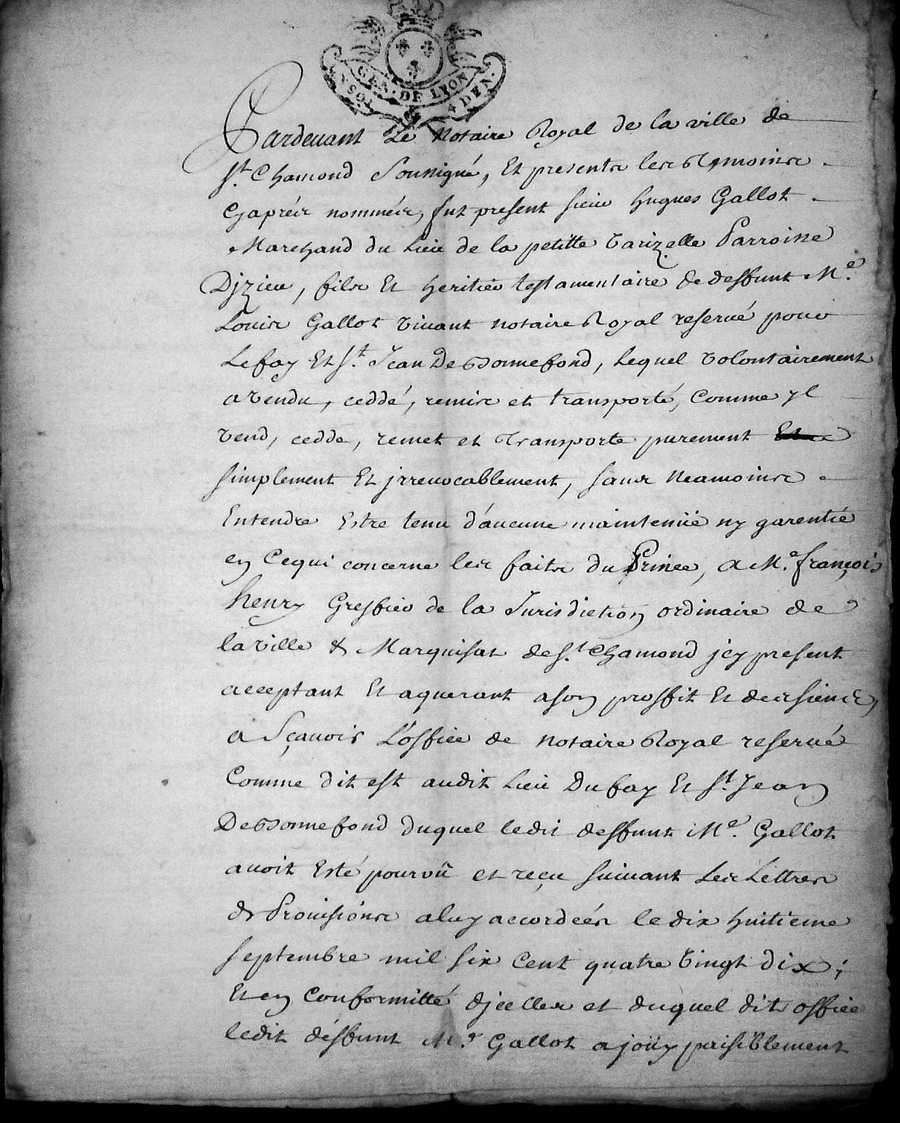 GEN. DE LYON
SOL 4 DEN.
Pardevant Le Notaire Royal de la ville de
St. Chamond Soussigné, Et presents les temoins
Cyaprés nommés, fut present sieur hugues Gallot
Marchand du Lieu de la petitte Varizelle Parroisse
Djzieu, fils Et heritier testamentaire de deffunt Me.
Louis Gallot vivant notaire Royal reservé pour
Lefay Et St. Jean De Bonnefond, lequel volontairement
a vendu, ceddé, remis et transporté, Comme yl
vend, cedde, remet et Transporte purement Et
simplement Et jrrevocablement, sans neamoins
Entendre Estre tenu d'aucune maintenüe ny garentie
en Cequi concerne les faits du Prince, a Me. françois
henry Greffier de la Jurisdiction ordinaire de
la ville & Marquisat de St. Chamond jcy present
acceptant Et aquerant a son proffit Et des siens,
a Sçavoir L'office de notaire Royal reservé
Comme dit est audit Lieu Du fay Et St. Jean
De Bonnefond duquel ledit deffunt Me. Gallot
avoit Esté pourvû et reçu suivant Les Lettres
de Provisions a luy accordées le dix huitieme
septembre mil six cent quatre vingt dix;
Et en Conformitté djcelles et duquel dit office
ledit déffunt Me. Gallot a joüy paisiblement